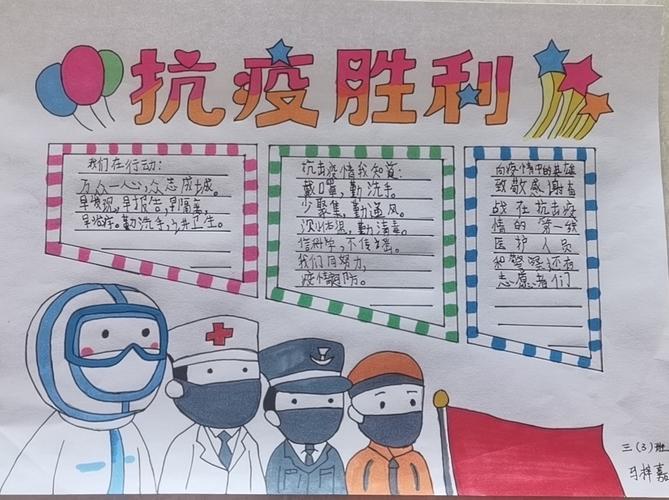 抗疫胜利
我们在行动:
万众一心,众志成城。
早发现,早报告,早隔离,
早治疗。勤洗手,讲卫生。
抗击疫情我知道:
戴口罩,勤洗手。
少聚集,勤通风。
测体温,勤消毒。
信科学,不传谣。
我们同努力,
疫情就防。
向疫情中的英雄
致敬感谢奋
战在抗击疫
情的第一线
医护人员
和警察还有
志愿者们
三(3)班
马梓嘉